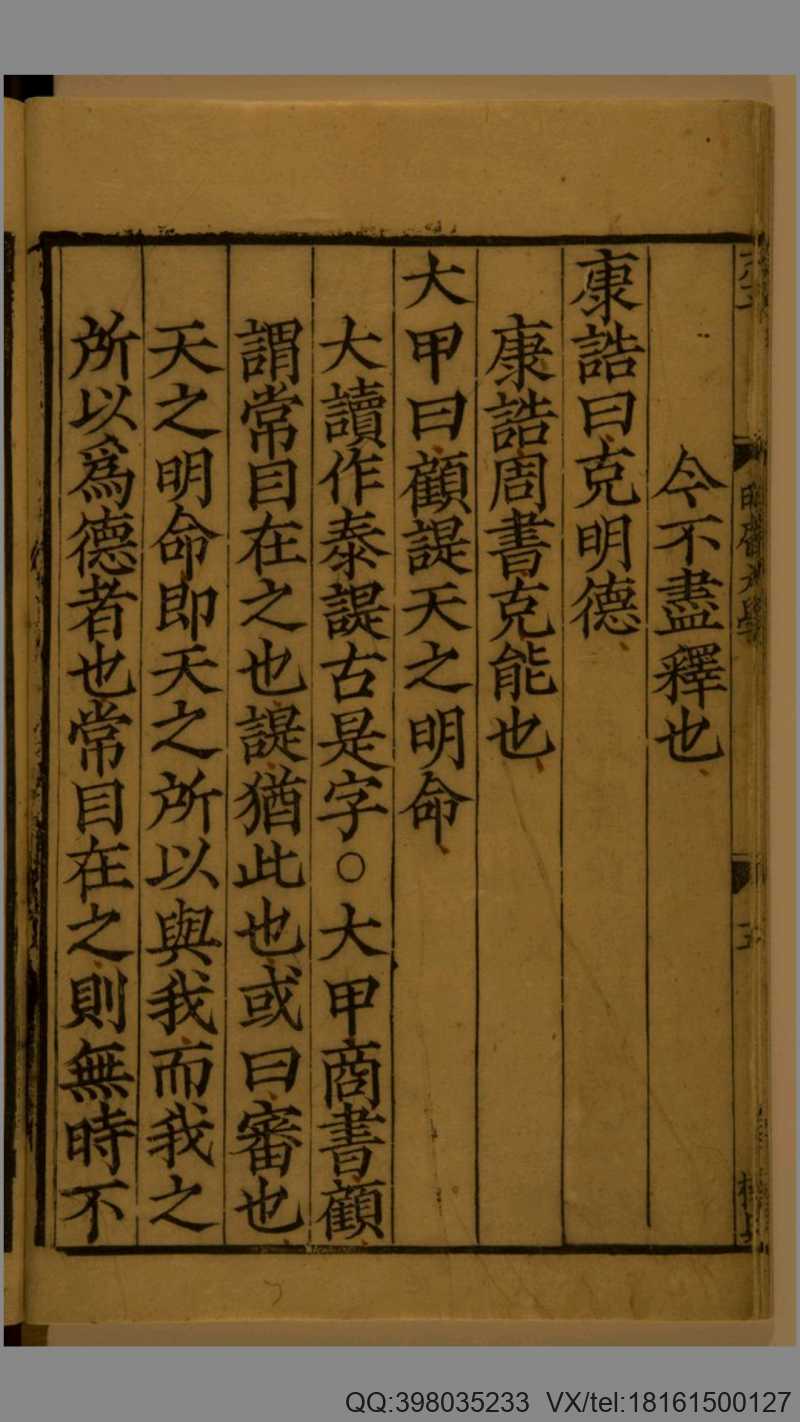 今不盡釋也
康誥曰克明德
康誥周書克能也
大甲曰顧諟天之明命
大讀作泰諟古是字○大甲商書顧
謂常目在之也諟猶此也或曰審也
天之明命即天之所以與我而我之
所以爲德者也常目在之則無時不
QQ:398035233 VX/tel:18161500127